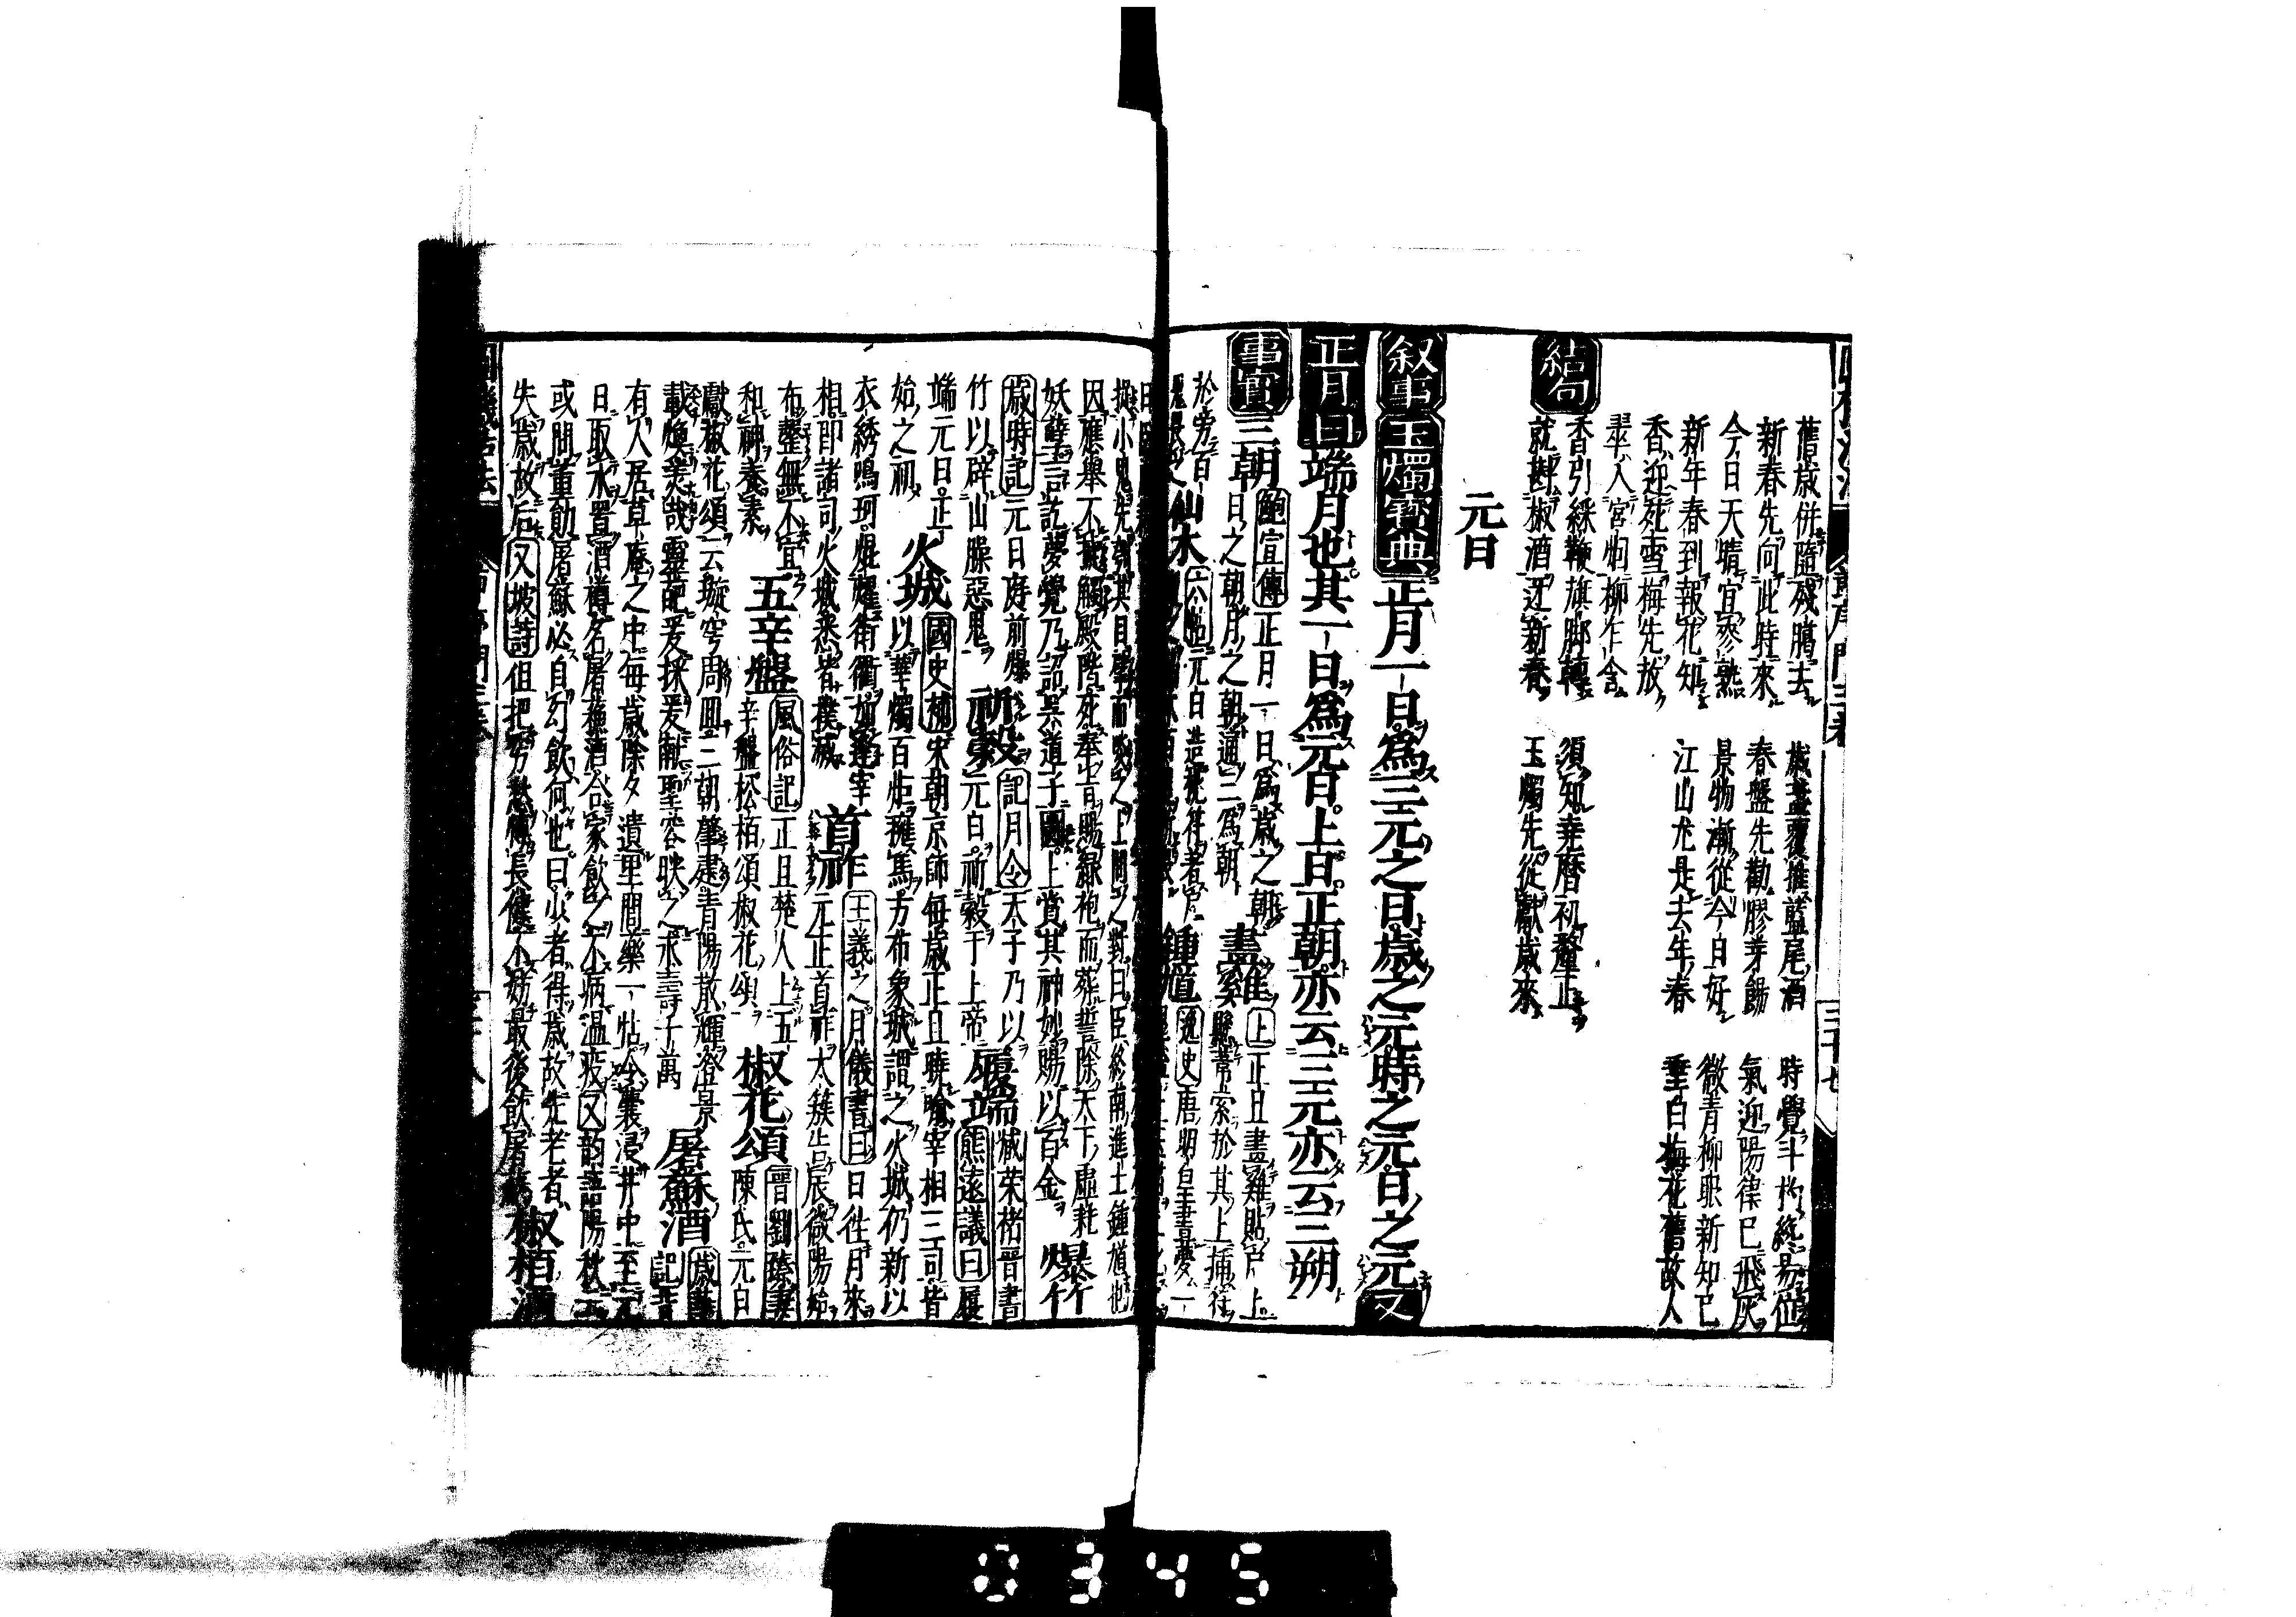 舊歲併隨殘臘去
歲盞覆推藍尾酒
時覺斗杓終易位
新春先向此時來
春盤先勸膠芽餳
氣迎陽律已飛灰
今日天晴宜麥熟
景物漸從今日好
微青柳眼新知己
新年春到報花知
江山尤是去年春
重白梅花舊故人
香迎死雪梅先放
翠入宮烟柳乍含
結句
香引綵鞭旗脚轉
須知堯曆初釐正
就斟椒酒迓新春
玉燭先從獻歲來
元日
叙事 玉燭寶典 正月一日爲三元之日歲之元時之元日之元 又
正月曰端月也其一日爲元日上日正朝亦云三元亦云三朔
事實 三朝 鮑宣傳 正月一日爲歲之朝
日之朝月之朝通三爲朝
畫雞 上 正旦畫雞貼戶上
懸葦索於其上插符
於旁百
六帖 元日造桃符著戶
鍾馗 逸史 唐明皇晝夢一
捉小鬼先刳其目擘而啖之上問之對曰臣終南進士鍾馗也
因應舉不捷觸殿階死奉旨賜緑袍而葬誓除天下虛耗
妖孽言訖夢覺乃詔吳道子圖上賞其神妙賜以百金 爆竹
歲時記 元日庭前爆
竹以辟山臊惡鬼
祈穀 記月令 天子乃以
元日祈穀于上帝
履端 臧荣褚晋書
熊遠議曰 履
端元日正
始之初
火城 國史補 宋朝京師每歲正旦曉
以華燭百炬擁馬方布象城謂之火城仍新以
宰相三司皆
衣綉鳴珂焜燿街衢如逢宰
相即諸司火城悉皆撲滅
首祚 王羲之月儀書曰 日徃月來
元正首祚太簇告辰微陽始
布罄無不宜
和神養素
五辛盤 風俗記 正旦楚人上五
辛盤松栢頌椒花頌
椒花頌 晉劉臻妻
陳氏元日
獻椒花頌云璇穹周迴三朝肇建青陽散輝澄景
載煥美哉靈葩爰採爰獻聖容映之永壽于萬
屠蘇酒 歲華
記昔
有人居草庵之中每歲除夕遺里閭藥一帖令囊浸井中至元
日取水置酒樽名屠蘓酒合家飲之不病温疫 又韵語陽秋云
或問董勛屠蘇必自幼飲何也曰少者得歲故先老者
失歲故后 又坡詩 但把窮愁博長健不妨最後飲屠蘓
椒栢酒
0345